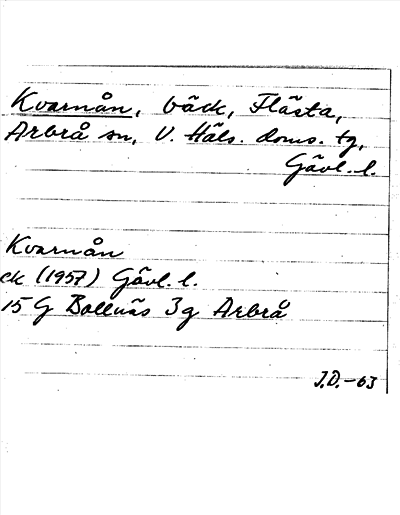 Kvarnån, bäck, Flästa,
Arbrå sn, V. Häls. doms. tg,
Gävl. l.
Kvarnån
ek (1957) Gävl. l.
15 G Bollnäs 3g Arbrå
J.D.-63